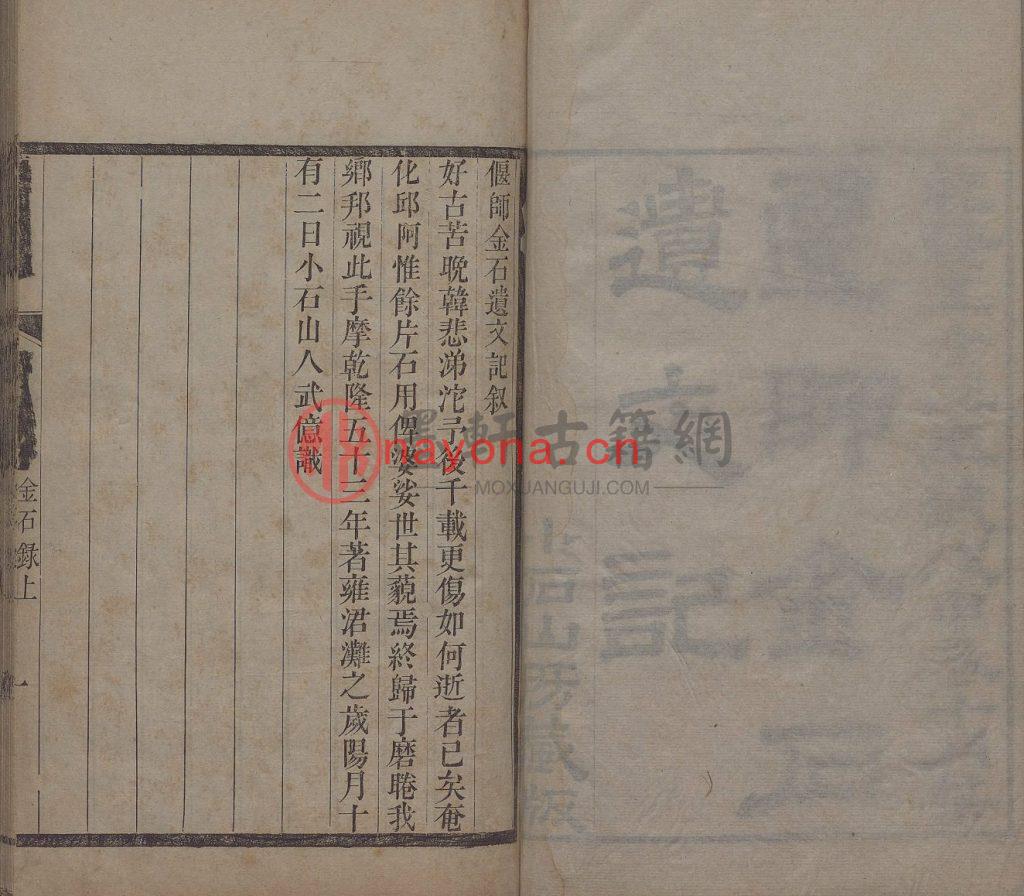 偃師金石遺文記叙
好古苦晚韓悲涕沱予後千載更傷如何逝者已矣奄
化邱阿惟餘片石用俾婆娑世其藐焉終歸于磨睠我
鄉邦視此手摩乾隆五十三年著雍涒灘之歲陽月十
有二日小石山人武億識
金石録上
一
遺文記
小石山房藏板
墨軒古籍網
nayona.cn
MOXUANGUJI.COM